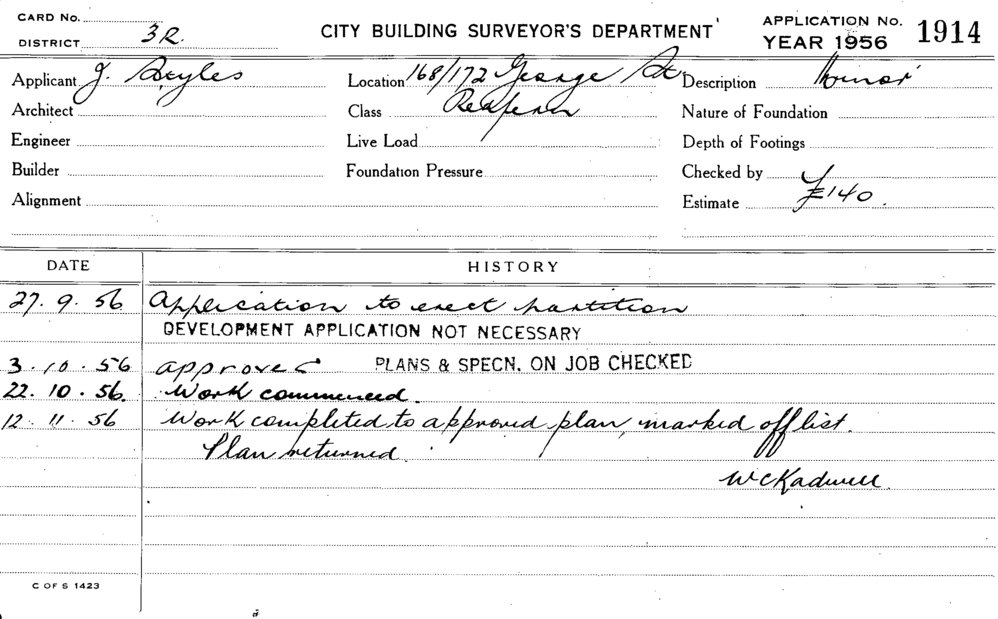 CARD No.
DISTRICT 3R.
CITY BUILDING SURVEYOR'S DEPARTMENT
APPLICATION No. 1914
YEAR 1956
Applicant J. Styles
Location 168/172 George St
Description Minor
Architect
Class
Nature of Foundation
Engineer
Live Load
Depth of Footings
Builder
Foundation Pressure
Checked by
Alignment
Estimate £140.
DATE HISTORY
27. 9. 56 Application to erect partition
DEVELOPMENT APPLICATION NOT NECESSARY
3. 10. 56 approved PLANS & SPECN. ON JOB CHECKED
22. 10. 56. Work commenced.
12. 11. 56 Work completed to approved plan, marked off list.
Plan returned.
WCKadwell
C OF S 1423